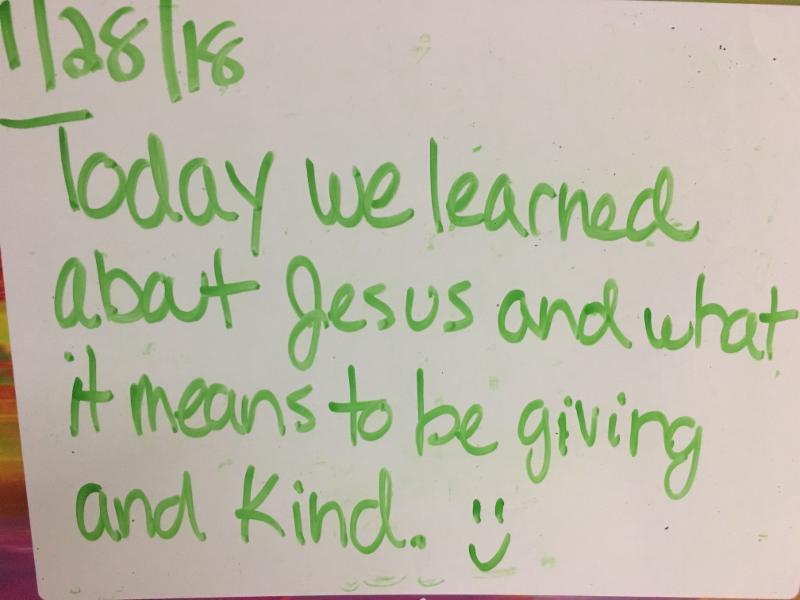 1/28/18
Today we learned
about Jesus and what
it means to be giving
and kind. :)